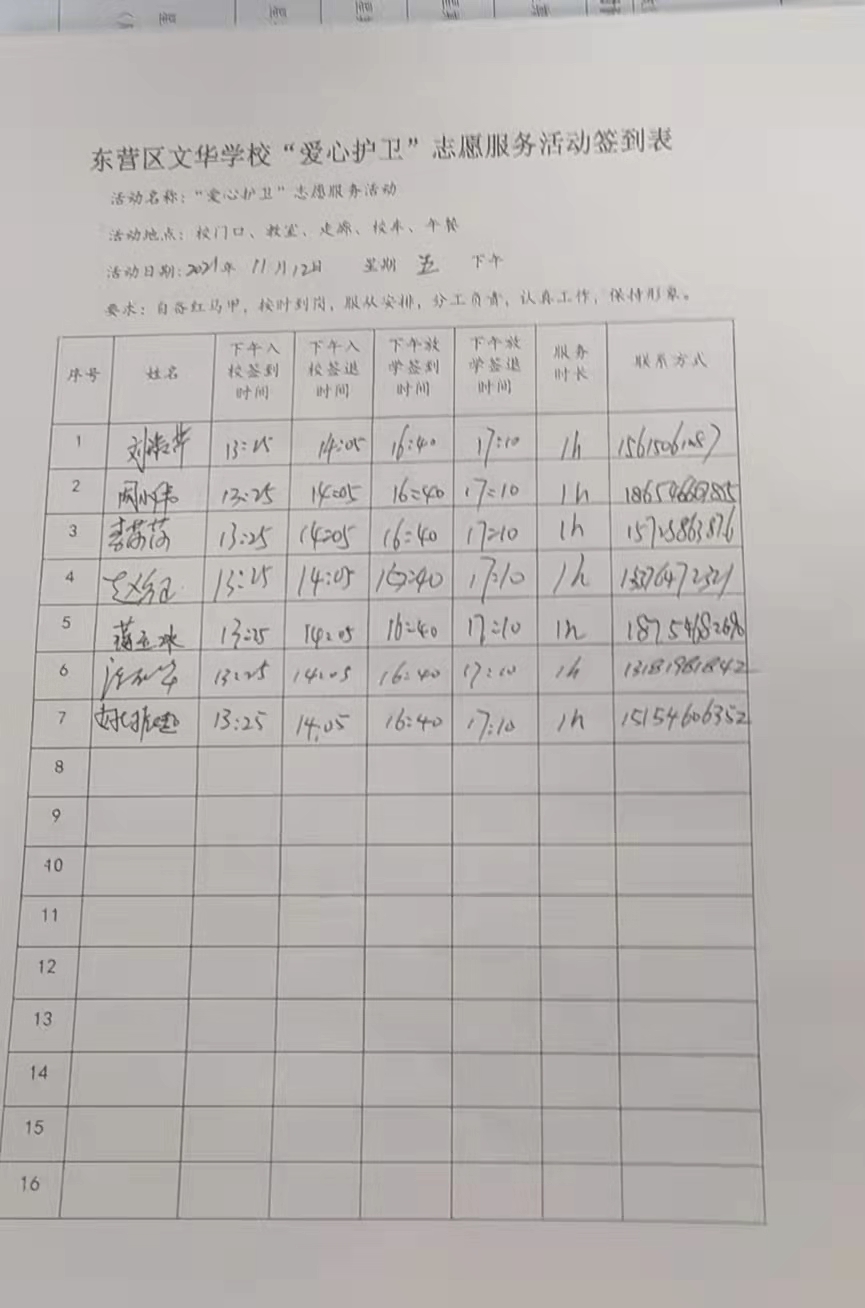 东营区文华学校“爱心护卫”志愿服务活动签到表
活动名称:“爱心护卫”志愿服务活动
活动地点:校门口、教室、走廊、校车、午餐
活动日期:2021年 11月12日 星期 五 下午
要求:自备红马甲,按时到岗,服从安排,分工负责,认真工作,保持形象。
序号 姓名 下午入校签到时间 下午入校签退时间 下午放学签到时间 下午放学签退时间 服务时长 联系方式
1 13:25 14:05 16:40 17:10 1h
2 周小伟 13:25 14:05 16:40 17:10 1h
3 李莎莎 13:25 14:05 16:40 17:10 1h
4 13:25 14:05 16:40 17:10 1h 15376472321
5 13:25 14:05 16:40 17:10 1h
6 13:25 14:05 16:40 17:10 1h 13181981842
7 13:25 14:05 16:40 17:10 1h 15154606352
8
9
10
11
12
13
14
15
16